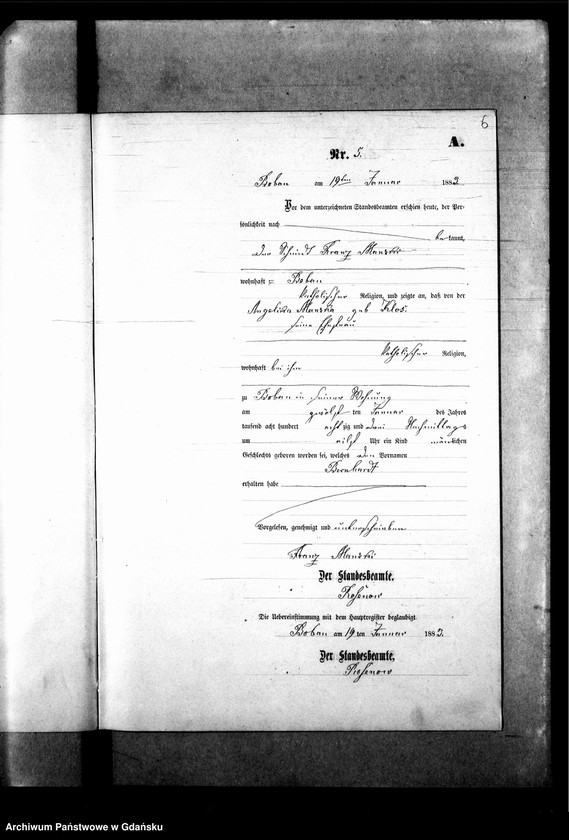 6
A.
Nr. 5.
Bobau am 19ten Januar 1883
Vor dem unterzeichneten Standesbeamten erschien heute, der Per-
sönlichkeit nach
be kannt,
der Schmidt Franz Manski
wohnhaft zu Bobau
katholischer Religion, und zeigte an, daß von der
Angelika Manska geb Klos.
seine Ehefrau
katholischer Religion,
wohnhaft bei ihm
zu Bobau in seiner Wohnung
am zwölf ten Januar des Jahres
tausend acht hundert acht zig und drei Nachmittags
um eilf Uhr ein Kind männlichen
Geschlechts geboren worden sei, welches den Vornamen
Bernhardt
erhalten habe
Vorgelesen, genehmigt und unterschrieben
Franz Manski
Der Standesbeamte.
Rosenow
Die Uebereinstimmung mit dem Hauptregister beglaubigt
Bobau am 19 ten Januar 1883.
Der Standesbeamte.
Rosenow
Archiwum Państwowe w Gdańsku